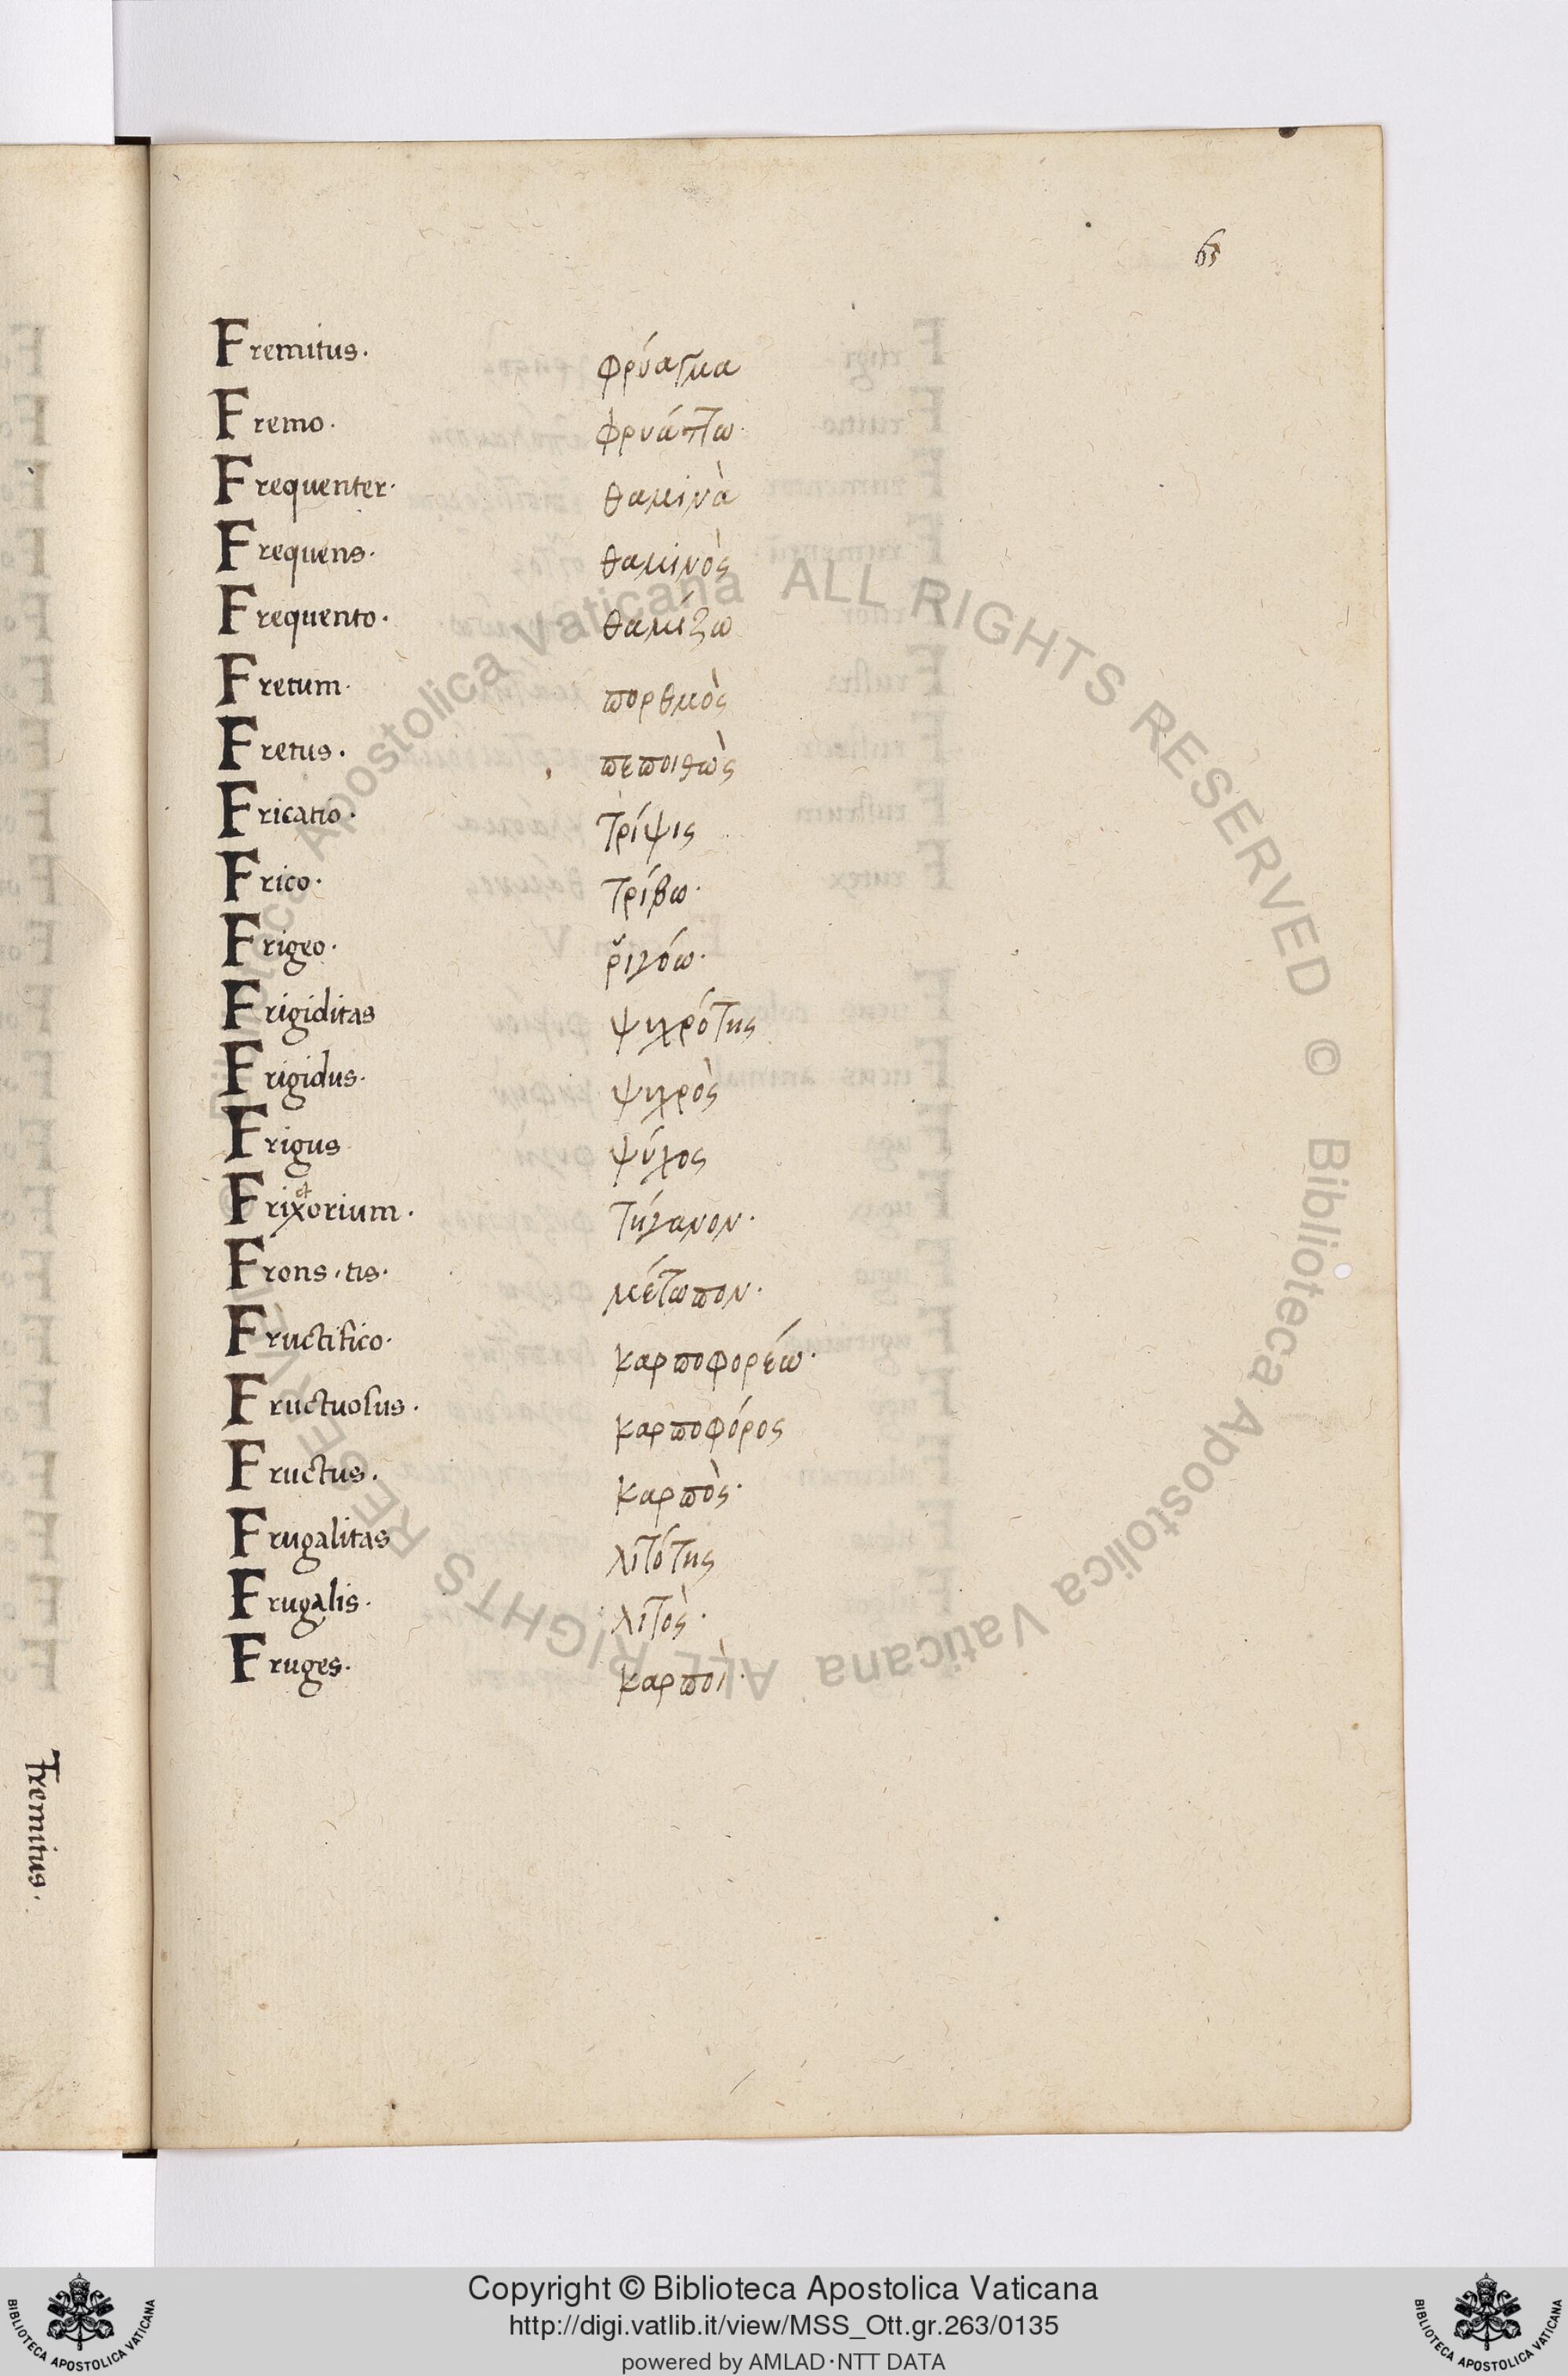 65
Fremitus. φρύαγμα
Fremo. φρυάττω.
Frequenter. θαμινὰ
Frequens. θαμινὸς
Frequento. θαμίζω
Fretum. πορθμὸς
Fretus. πεποιθὼς
Fricatio. τρίψις
Frico. τρίβω.
Frigeo. ῥιγόω.
Frigiditas ψυχρότης
Frigidus. ψυχρὸς
Frigus ψύχος
Frixorium. τήγανον.
Frons. tis. μέτωπον.
Fructifico. καρποφορέω.
Fructuosus. καρποφόρος
Fructus. καρπὸς.
Frugalitas λιτότης
Frugalis. λιτὸς.
Fruges. καρποὶ.
Fremitus.
Biblioteca Apostolica Vaticana ALL RIGHTS RESERVED © Biblioteca Apostolica Vaticana ALL RIGHTS RESERVED ©
Copyright © Biblioteca Apostolica Vaticana
http://digi.vatlib.it/view/MSS_Ott.gr.263/0135
powered by AMLAD·NTT DATA
BIBLIOTECA APOSTOLICA VATICANA
BIBLIOTECA APOSTOLICA VATICANA